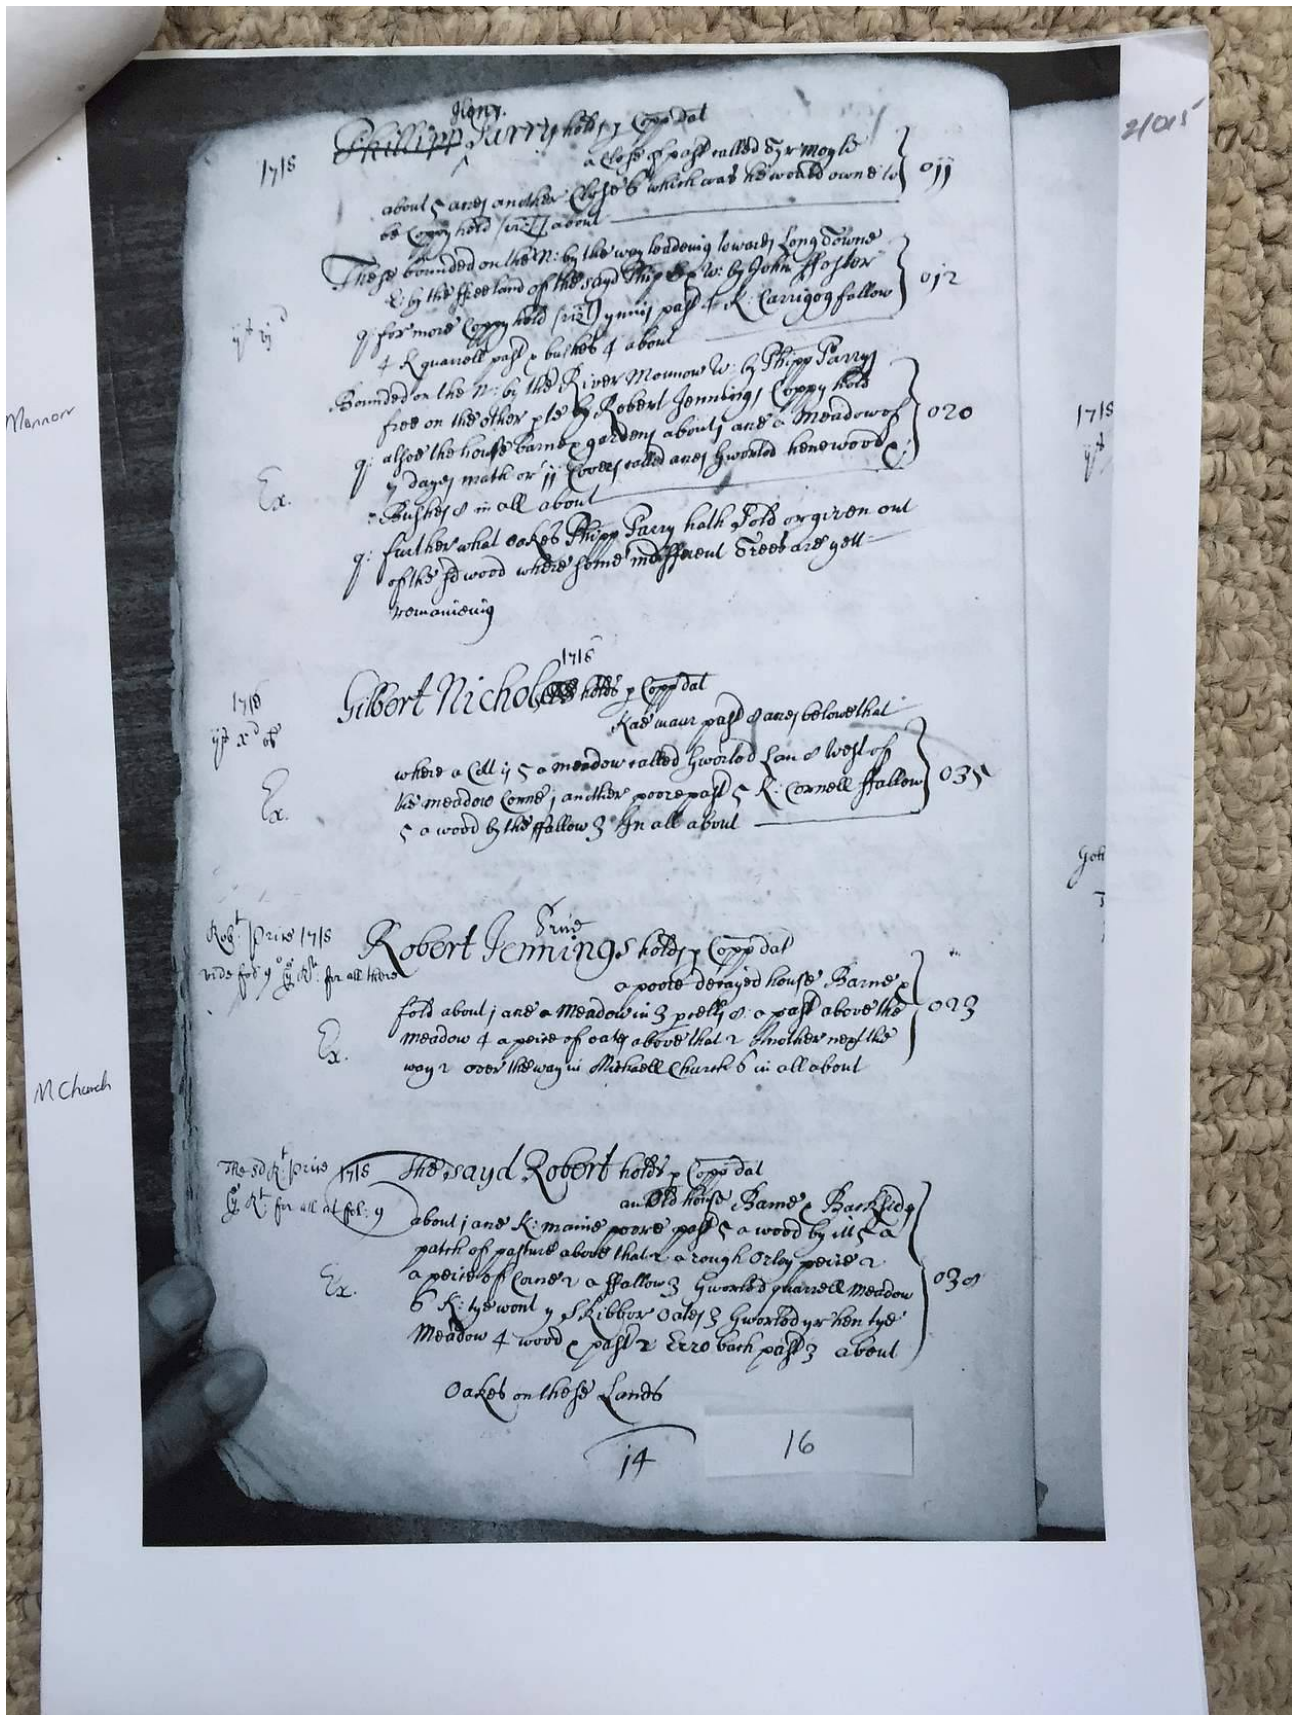 21015
Heny.
1715 Phillipp Parry holds p Copp dat
a Close of past called Tyr moyle
about 5 acrs another Close 6 which was he would owne to } 011
be Coppy hold (vizt) about
These bounded on the N: by the way leading towards Long Towne
E: by the ffree land of the sayd Phip & W: by John ffoster } 012
q: for more Coppy hold (vizt) ynnis past 4 K: Carrigog fallow
4 K quarrell past & bushes 4 about
Bounded on the N: by the River Monnow W: by Phipp Parrys
free on the other pte by Robert Jennings Coppy hold
Mannor
q: alsoe the house barne & gardens about j acre a Meadow of } 020
1715
Ex.
called Gworlod henewood &
Bushes 8 in all about
q: further what oakes Phipp Parry hath Sold or given out
of the sd wood where some indifferent Trees are yett
remaineing
1715
1715 Gilbert Nichol holds p Copp dat
Kae maur past 8 acrs below that
where a Cell is 5 a meadow called Gworlod Lan 8 West of
Ex. the meadow Corne j another poore past 5 K: Cornell ffallow } 035
5 a wood by the ffallow 3 In all about
Price
Robt: Price 1715 Robert Jennings holds p Copp dat
vide fol: 9 for all there
a poore decayed house Barne &
fold about j acre a Meadow in 3 pcells 8: a past above the } 023
Ex. meadow 4 a peice of oates above that 2 Another next the
way 2 over the way in Michaell Church 6 in all about
M Church
The sd Rt: Price 1715 The sayd Robert holds p Copp dat
for all at fol: 9
an Old house Barne & Backside
about j acre K: maine poore past 5 a wood by itt 5 a
patch of pasture above that 2 a rough Orley peice 2
Ex. a peice of Corne 2 a ffallow 3 Gworlod quarrell meadow } 038
6 K: tye wont y Skibbor oates 3 Gworlod yr hen tye
Meadow 4 wood & past 2 Erro bach past 3 about
Oakes on these Lands
14
16